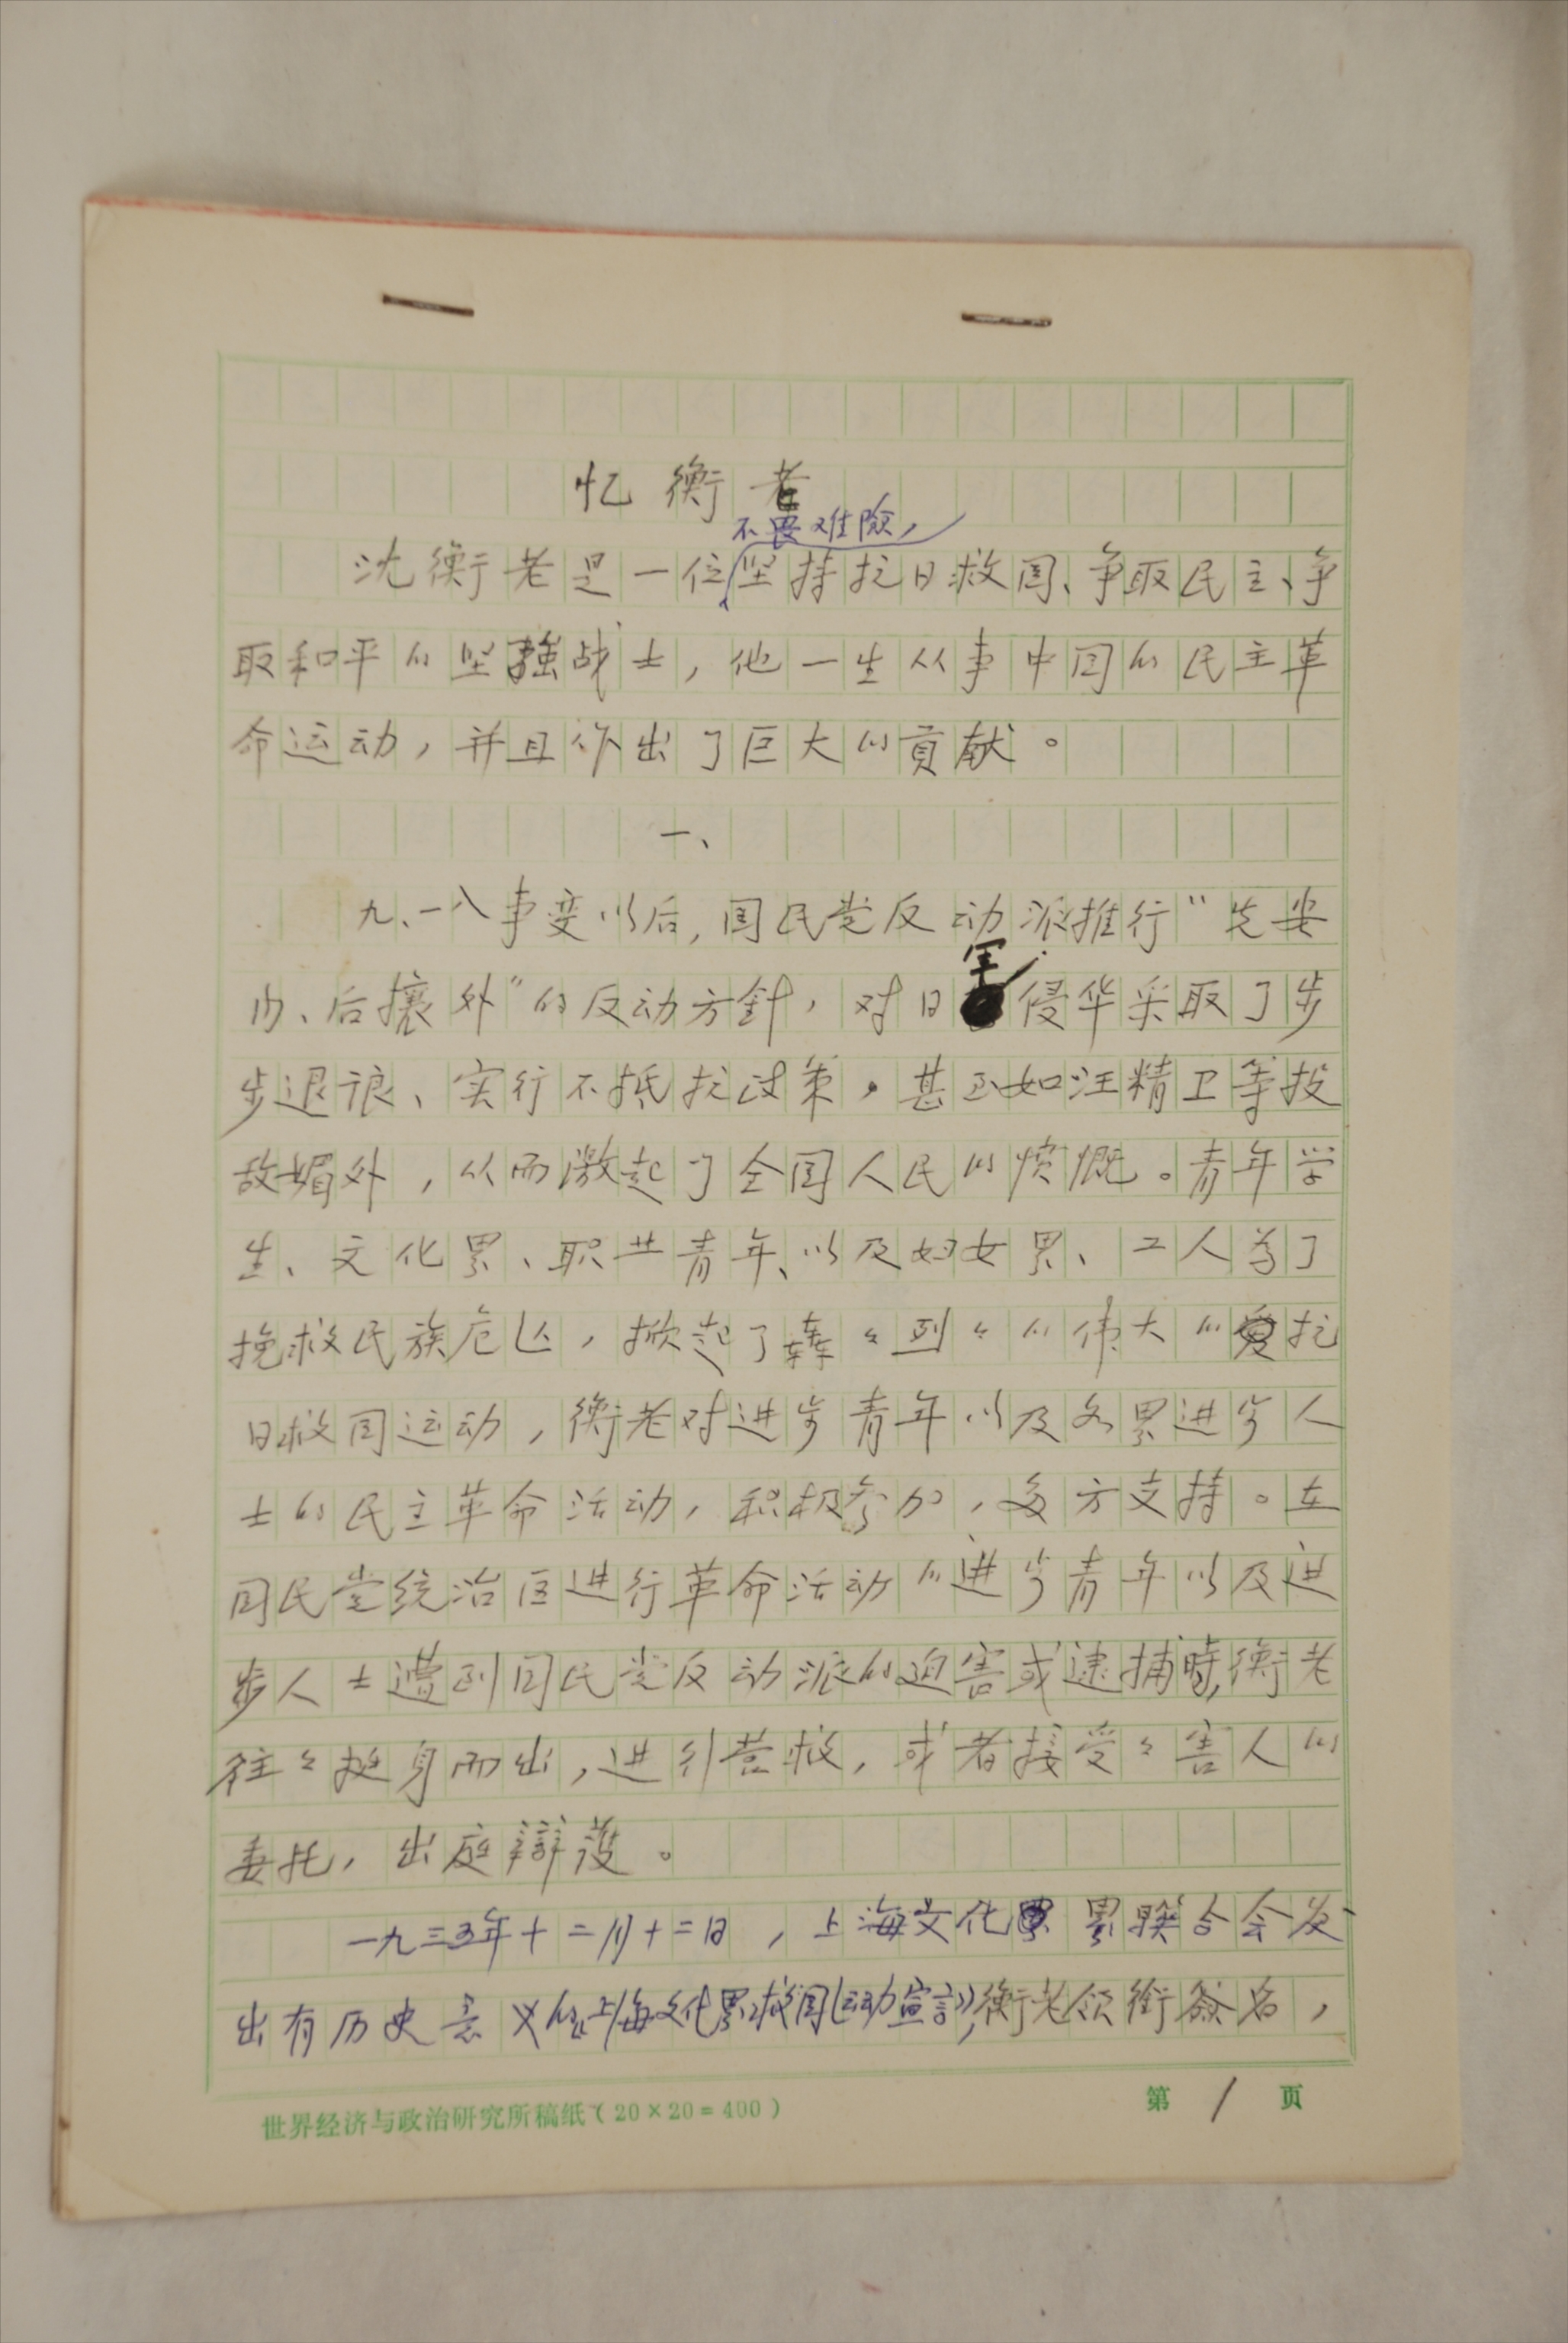 忆衡老
不畏难險，
沈衡老是一位坚持抗日救国、争取民主、争
取和平的坚強战士，他一生从事中国的民主革
命运动，并且作出了巨大的貢献。
一、
九、一八事变以后，国民党反动派推行“先安
内、后攘外”的反动方針，对日军侵华采取了步
步退讓、实行不抵抗政策，甚至如汪精卫等投
敌媚外，从而激起了全国人民的愤慨。青年学
生、文化界、职业青年、以及妇女界、工人为了
挽救民族危亡，掀起了轰々烈々的伟大的抗
日救国运动，衡老对进步青年以及各界进步人
士的民主革命活动，积极参加，多方支持。在
国民党统治区进行革命活动的进步青年以及进
步人士遭到国民党反动派的迫害或逮捕時，衡老
往々挺身而出，进行营救，或者接受々害人的
委托，出庭辯護。
一九三五年十二月十二日，上海文化界联合会发
出有历史意义的《上海文化界救国运动宣言》，衡老领銜签名，
世界经济与政治研究所稿纸（20×20=400）
第 1 页